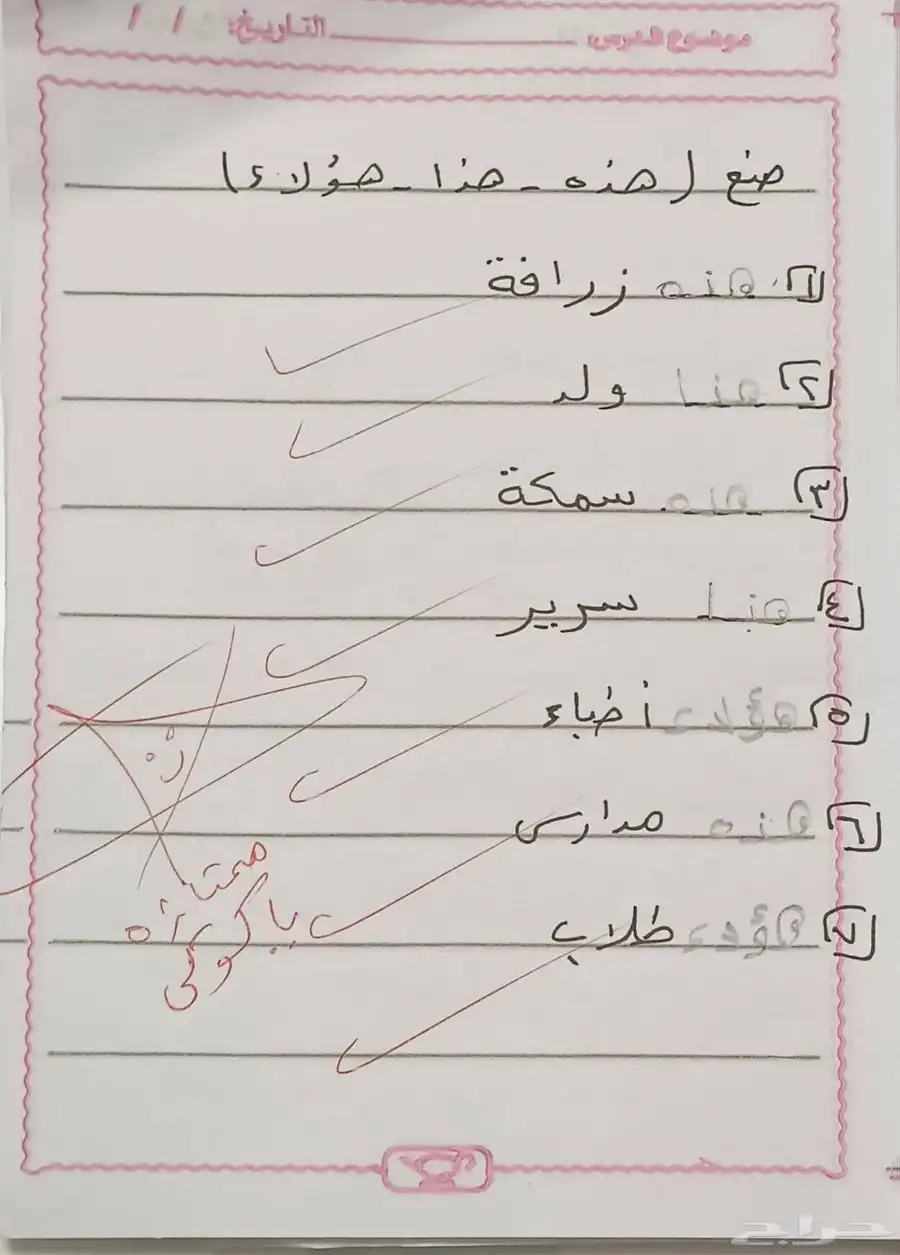 موضوع الدرس: ــــــــــ التاريخ: / /
ضع (هذه - هذا - هؤلاء)
١ هذه زرافة
٢ هذا ولد
٣ هذه سمكة
٤ هذا سرير
٥ هؤلاء أطباء
٦ هذه مدارس
٧ هؤلاء طلاب
ممتا
حراج